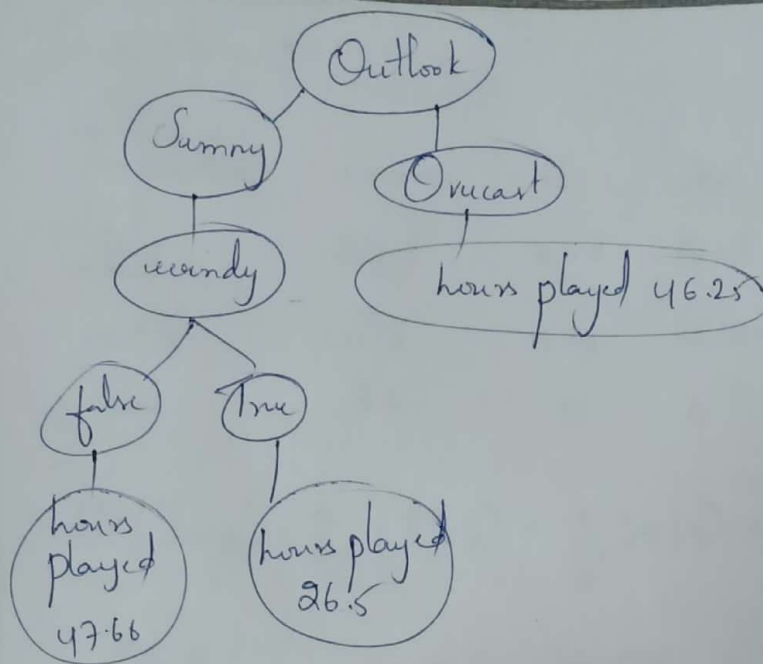 Outlook
Sunny
Overcast
windy
hours played 46.25
false
True
hours
played
47.66
hours played
26.5